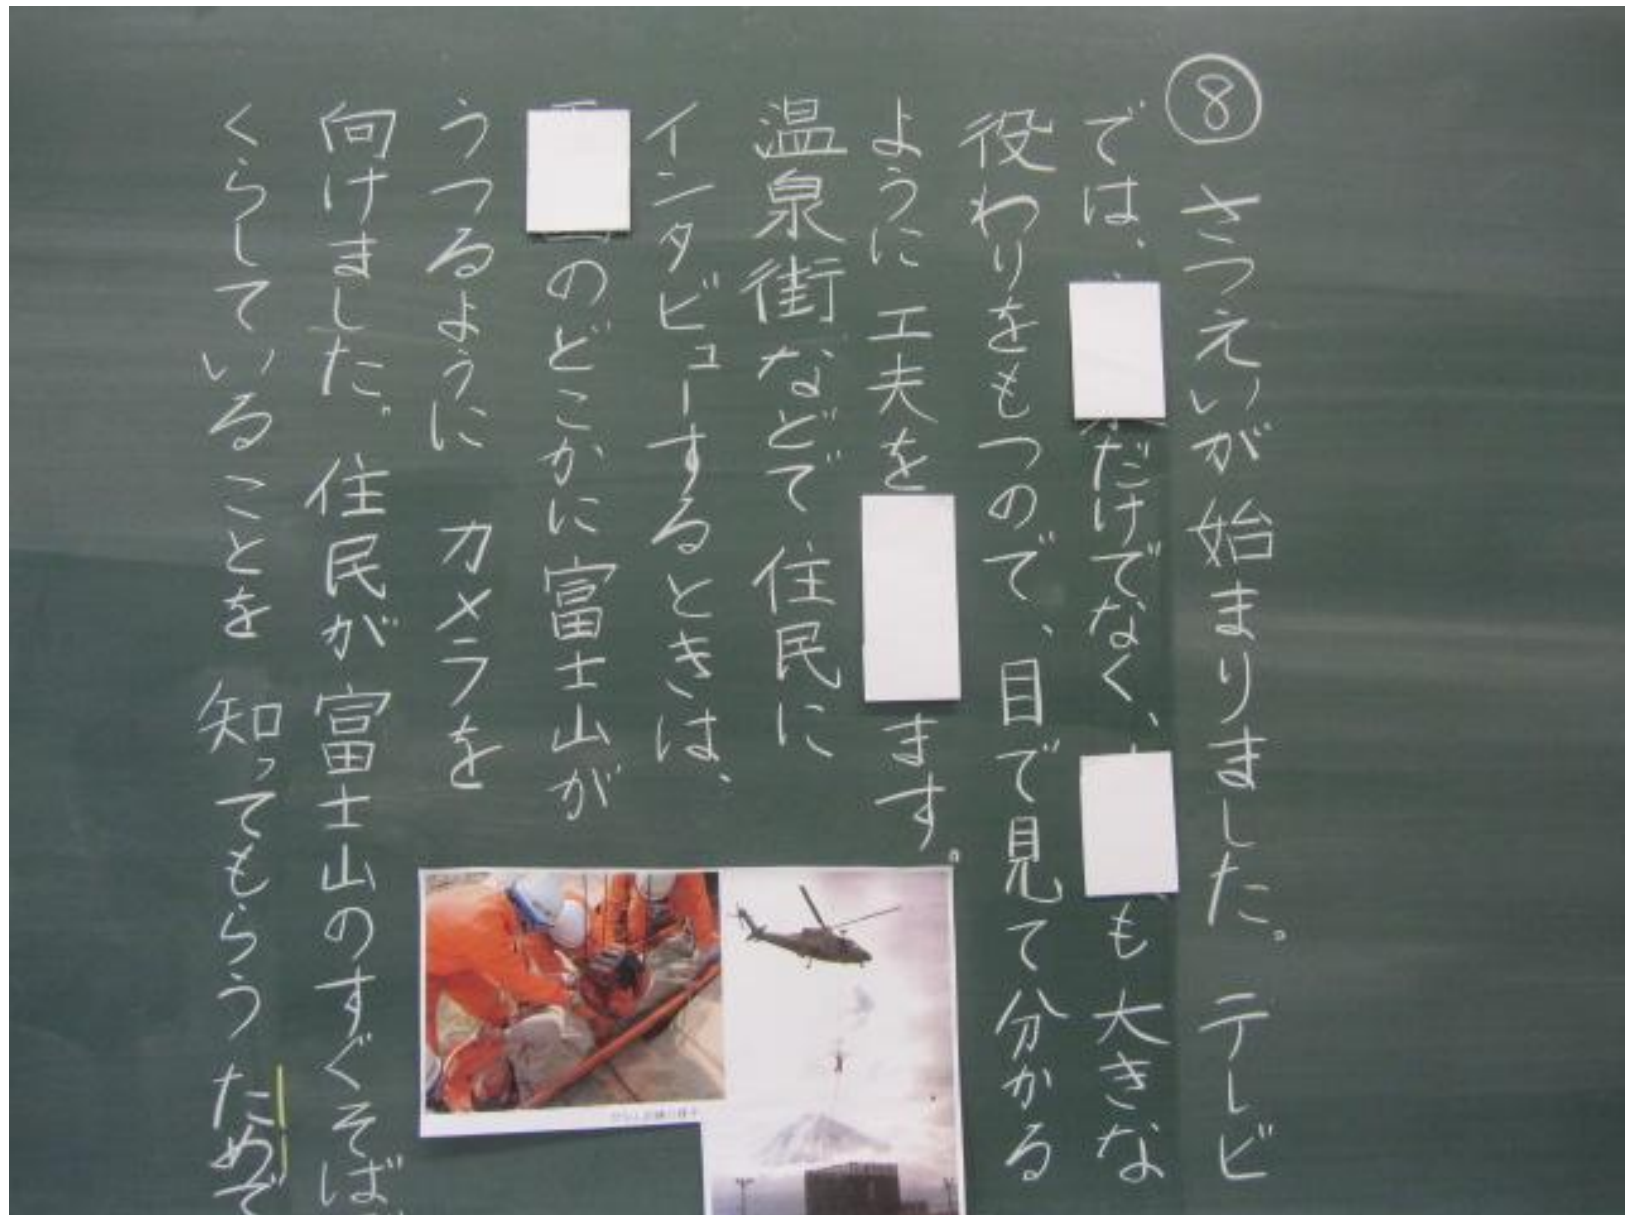 ⑧ さつえいが始まりました。テレビ
では、だけでなく、も大きな
役わりをもつので、目で見て分かる
ように工夫をます。
温泉街などで住民に
インタビューするときは、
のどこかに富士山が
うつるように カメラを
向けました。住民が富士山のすぐそば
くらしていることを 知ってもらうためで